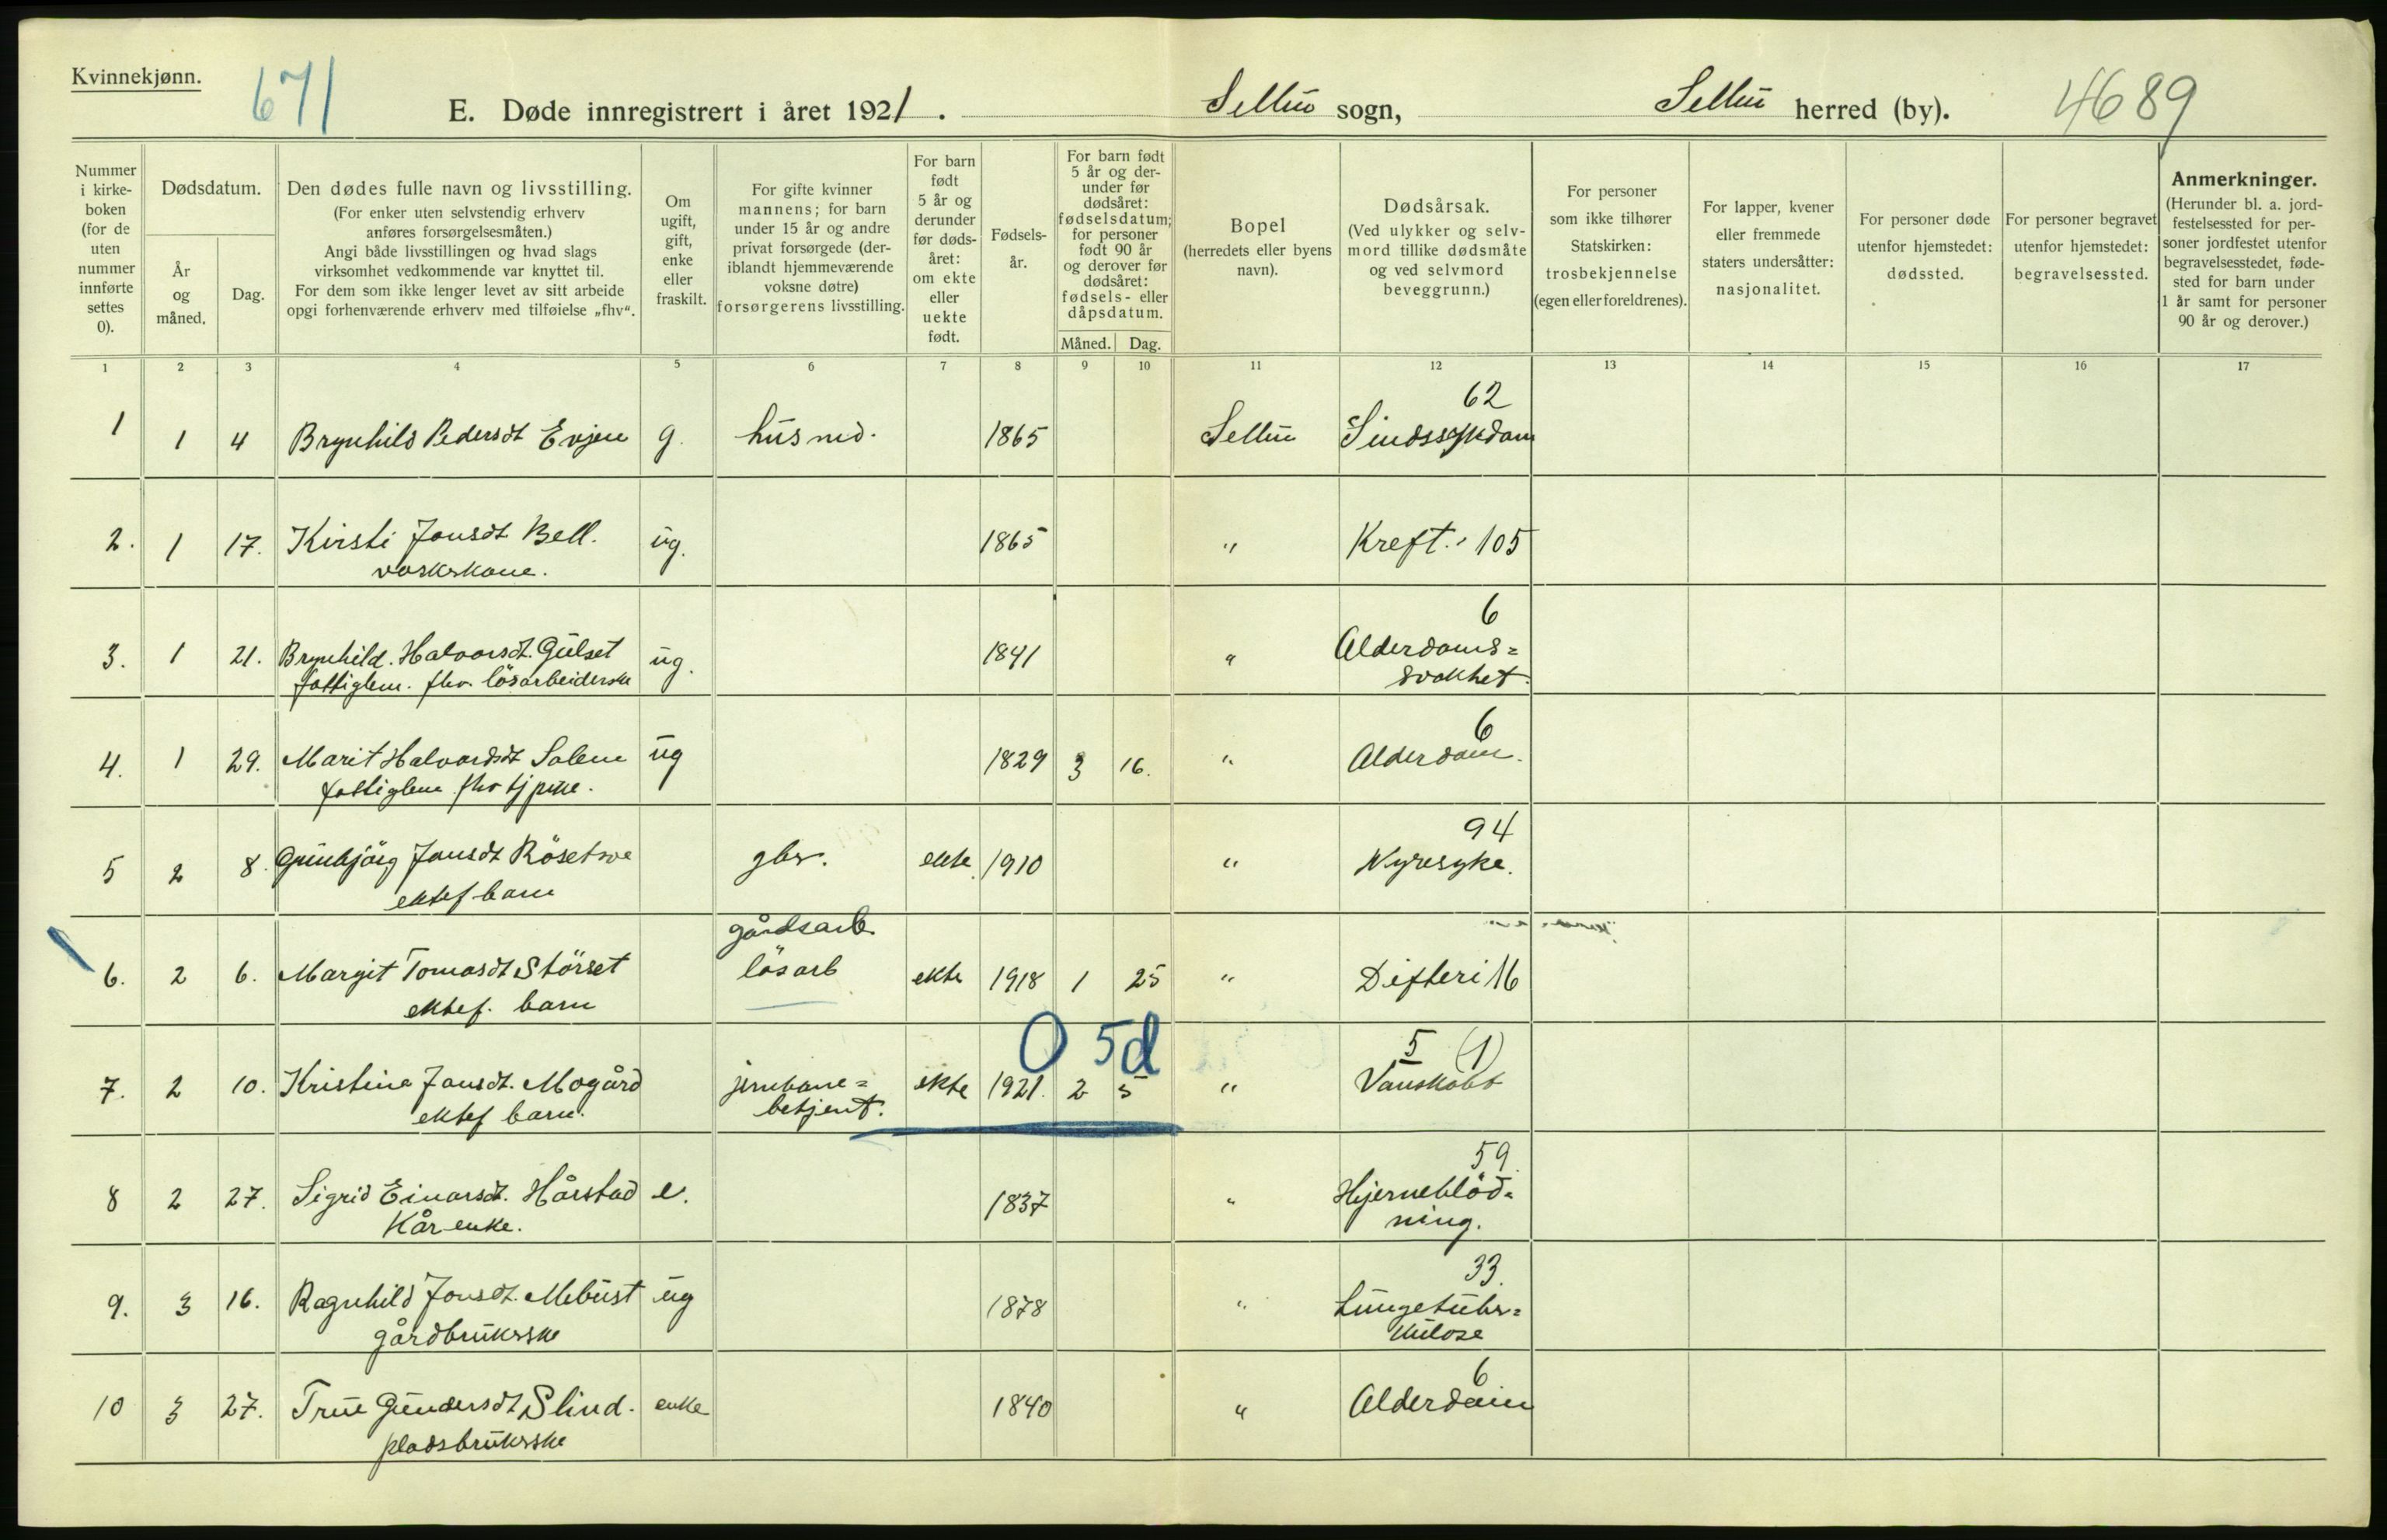 Kvinnekjønn.
671
E. Døde innregistrert i året 1921.
Selbu sogn,
Selbu herred (by).
4689
Nummer i kirke-boken (for de uten nummer innførte settes 0).
Dødsdatum.
År og måned.
Dag.
Den dødes fulle navn og livsstilling.
(For enker uten selvstendig erhverv anføres forsørgelsesmåten.)
Angi både livsstillingen og hvad slags virksomhet vedkommende var knyttet til.
For dem som ikke lenger levet av sitt arbeide opgi forhenværende erhverv med tilføielse „fhv“.
Om ugift, gift, enke eller fraskilt.
For gifte kvinner mannens; for barn under 15 år og andre privat forsørgede (deriblandt hjemmeværende voksne døtre) forsørgerens livsstilling.
For barn født 5 år og derunder før dødsåret: om ekte eller uekte født.
Fødsels-år.
For barn født 5 år og derunder før dødsåret: fødselsdatum; for personer født 90 år og derover før dødsåret: fødsels- eller dåpsdatum.
Måned.
Dag.
Bopel
(herredets eller byens navn).
Dødsårsak.
(Ved ulykker og selvmord tillike dødsmåte og ved selvmord beveggrunn.)
For personer som ikke tilhører Statskirken: trosbekjennelse (egen eller foreldrenes).
For lapper, kvener eller fremmede staters undersåtter: nasjonalitet.
For personer døde utenfor hjemstedet: dødssted.
For personer begravet utenfor hjemstedet: begravelsessted.
Anmerkninger.
(Herunder bl. a. jordfestelsessted for personer jordfestet utenfor begravelsesstedet, fødested for barn under 1 år samt for personer 90 år og derover.)
1 2 3 4 5 6 7 8 9 10 11 12 13 14 15 16 17
62
1 1 4 Brynhild Pedersdt Evjen g. husmd. 1865 Selbu Sindssykdom
2. 1 17. Kirsti Jonsdt Bell. ug. 1865 " Kreft. 105
vaskekone.
6
3. 1 21. Brynhild. Halvorsdt. Gulset ug. 1841 " Alderdoms=
fattiglem. fhv. lösarbeiderske svakhet.
6
4. 1 29. Marit Halvordsdt Solem ug 1829 3 16. " Alderdom.
fattiglem fhv tjpike.
94
5 2 8. Gunbjörg Jonsdt Rösetvoe gbr. ekte 1910 " Nyresyke.
ektef barn
gårdsarb
6. 2 6. Margit Tomasdt Störset lösarb ekte 1918 1 25 " Difteri 16
ektef. barn
0 5d 5 (1)
7. 2 10. Kristine Jonsdt. Mogård jernbane= ekte 1921. 2 5 " Vanskabt
ektef barn. betjent.
59.
8 2 27. Sigrid Einarsdt. Hårstad e. 1837 " Hjerneblöd=
Kårenke. ning.
33.
9. 3 16. Ragnhild Jonsdt. Mebust ug 1878 " Lungetuber=
gårdbrukerske kulose
6
10 3 27. True Gundersdt Slind. enke 1840 " Alderdom
pladsbrukerske